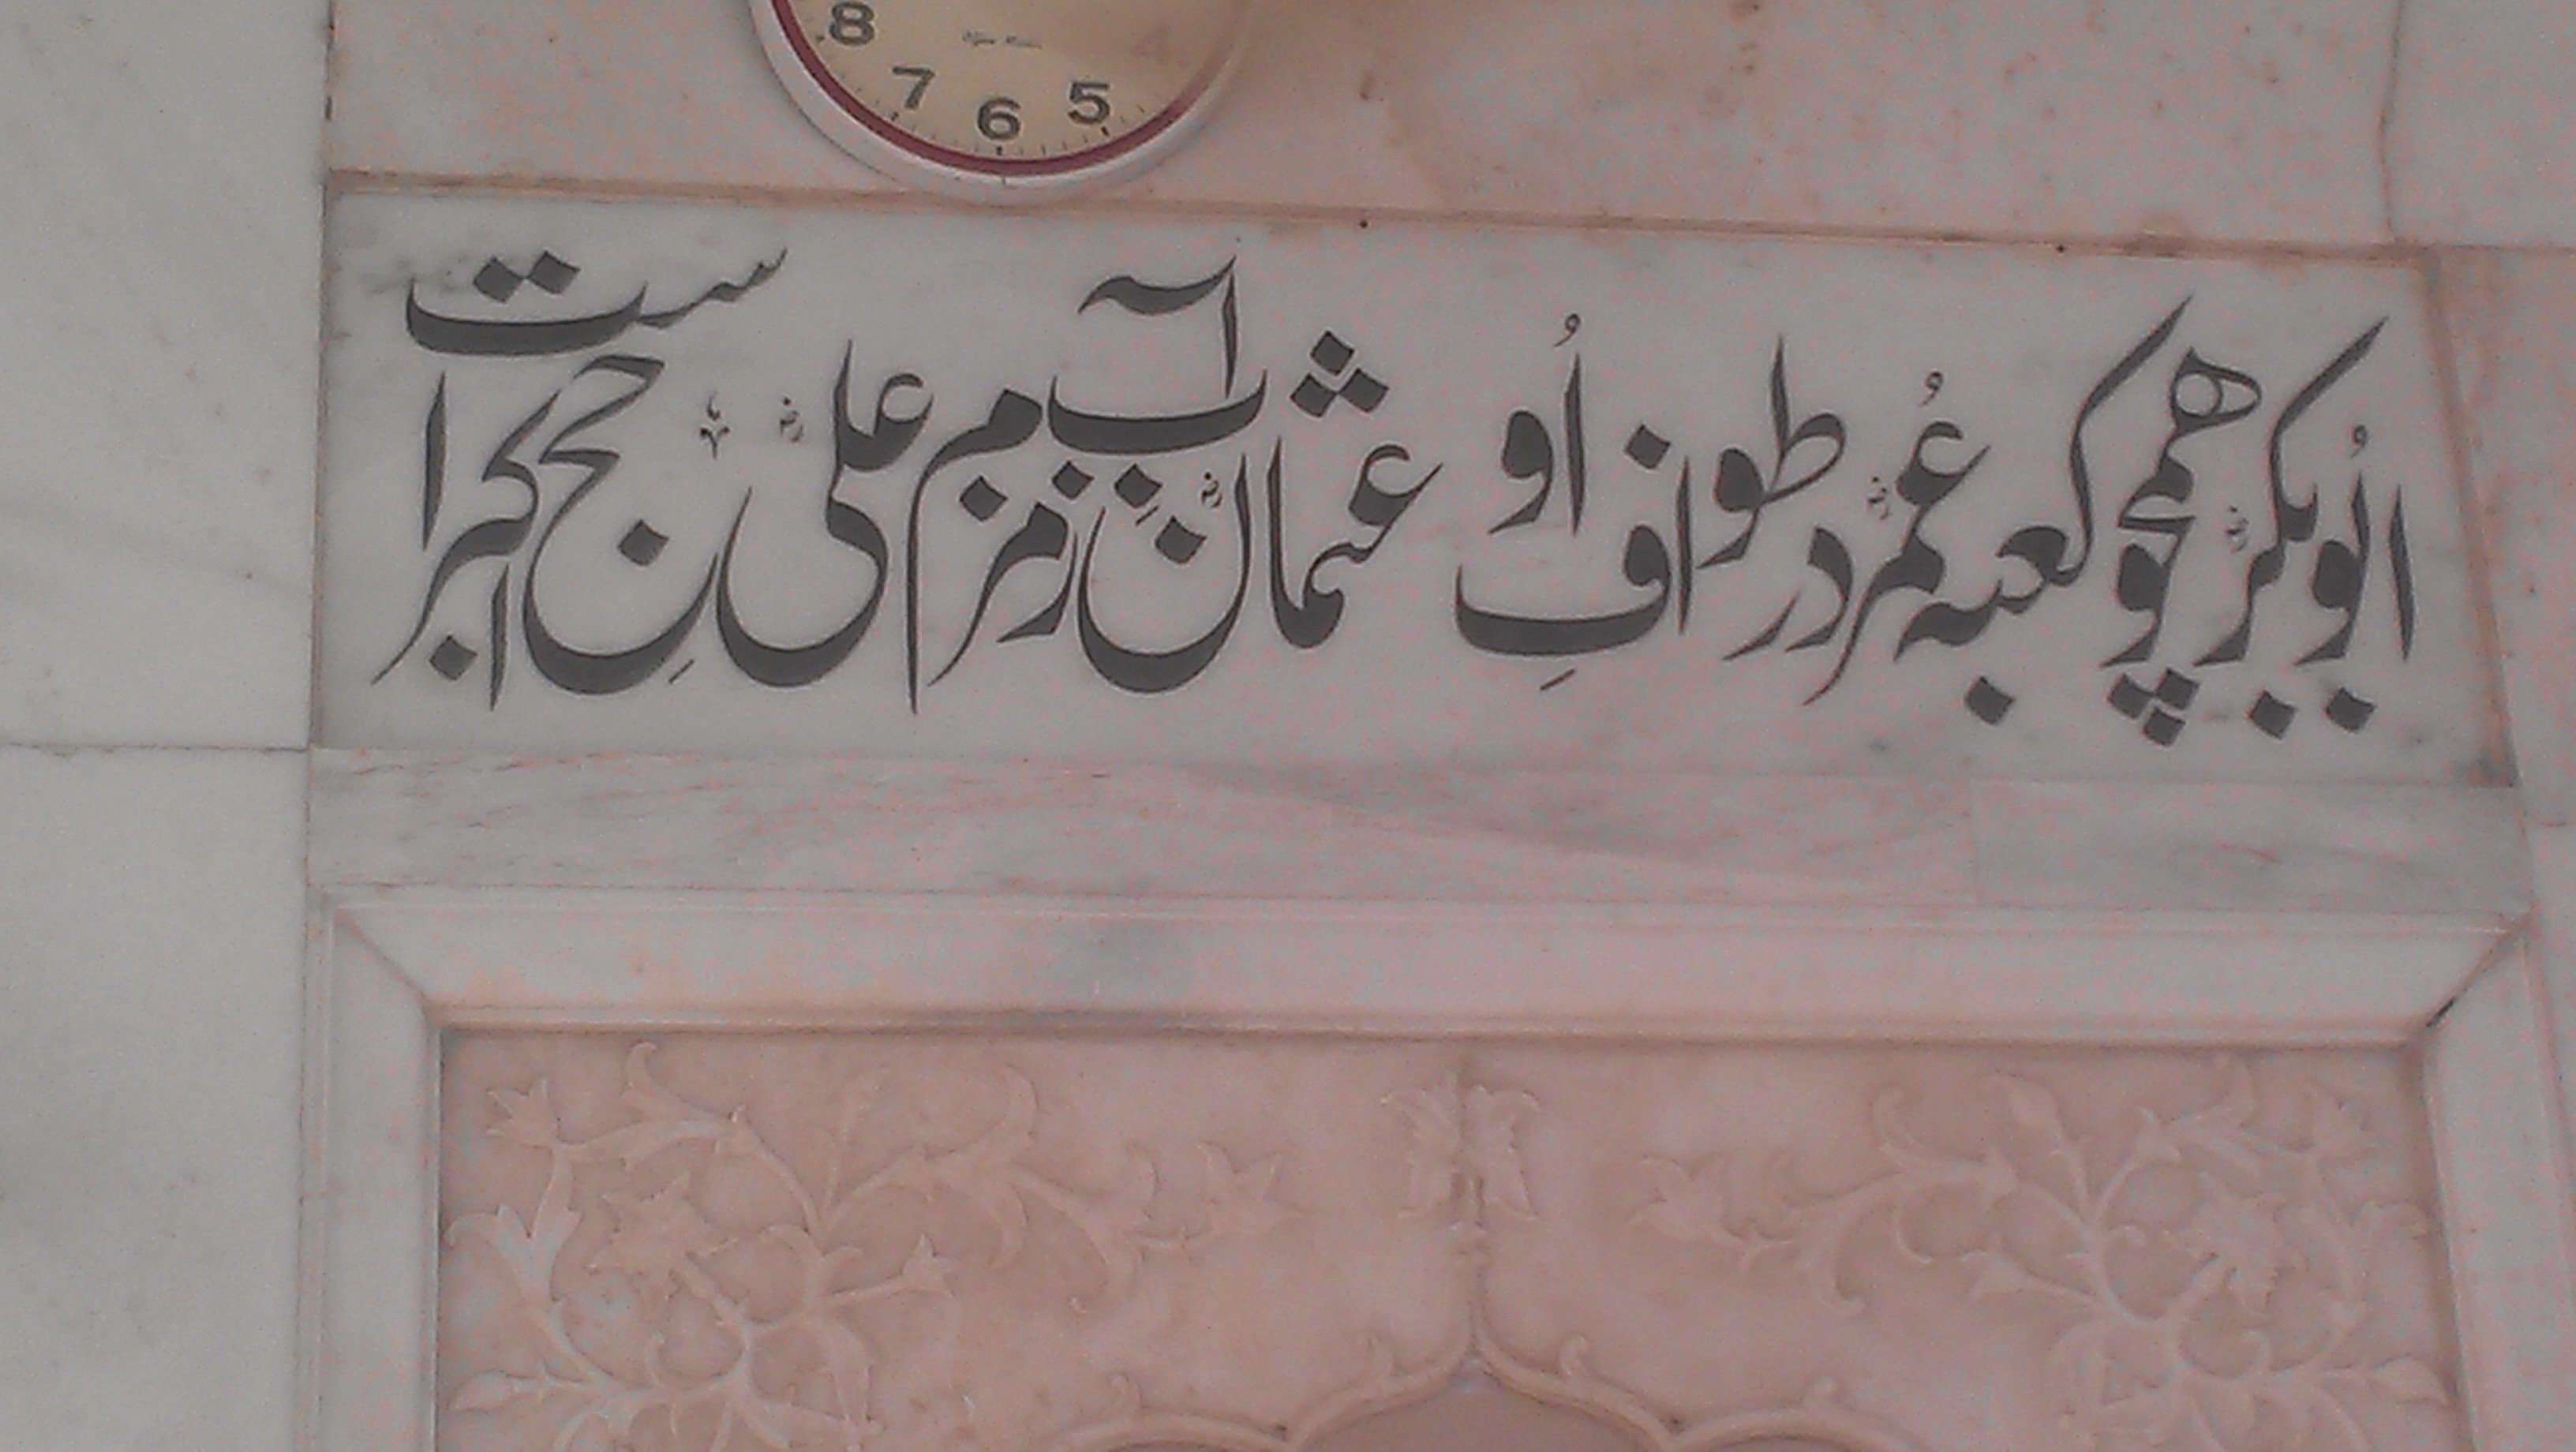 8 7 6 5 4
ابُوبکرؓ ہمچو کعبہ عُمرؓ در طوافِ اُو عثمانؓ آبِ زمزم علیؓ حجِ اکبر است